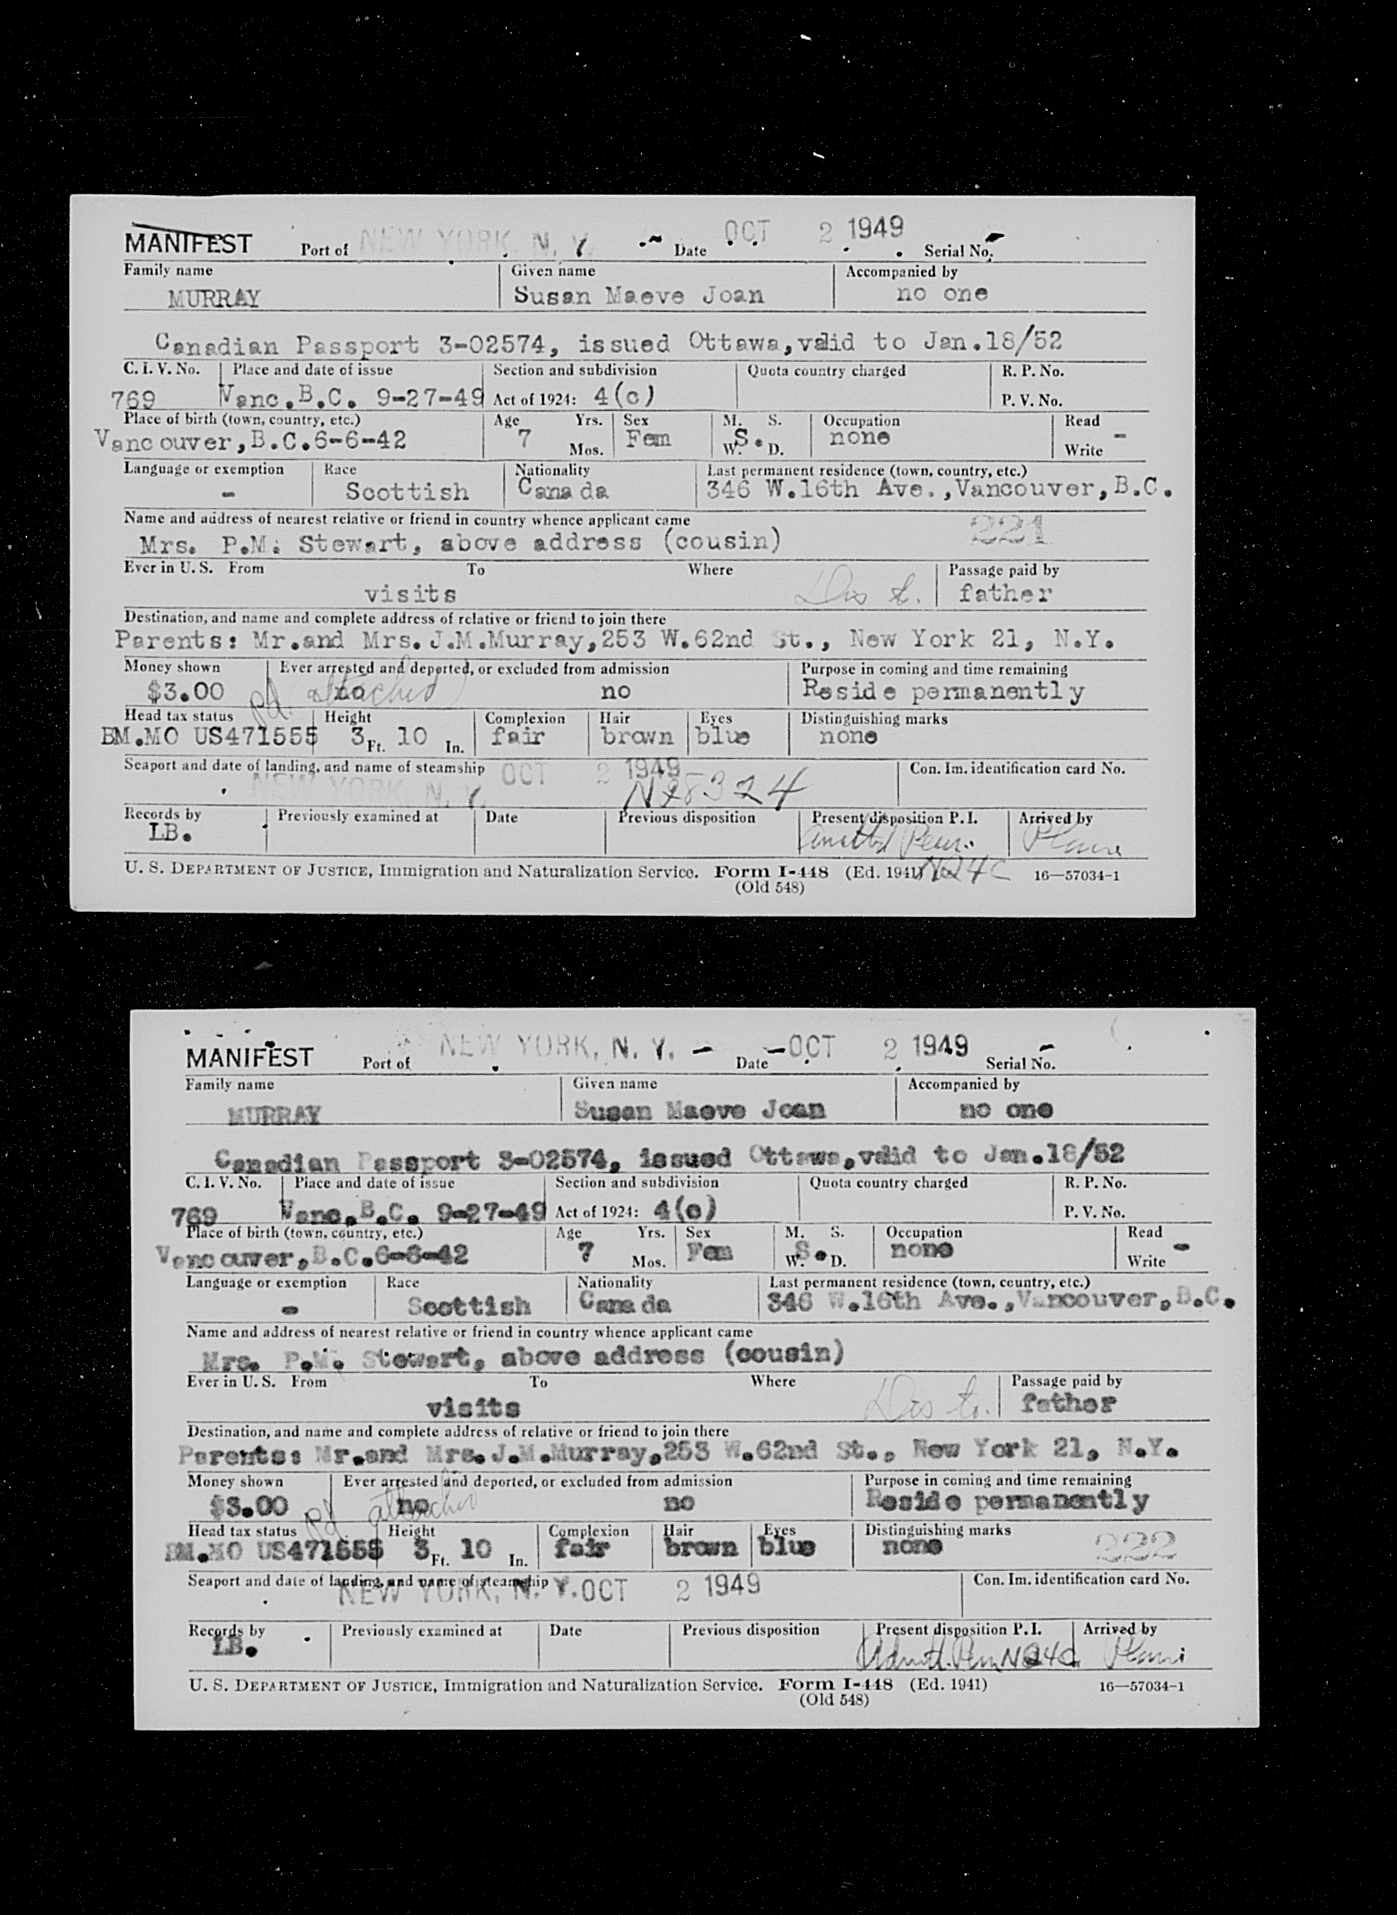 MANIFEST Port of NEW YORK, N. Y. Date OCT 2 1949 Serial No.
Family name Given name Accompanied by
MURRAY Susan Maeve Joan no one
Canadian Passport 3-02574, issued Ottawa,valid to Jan.18/52
C. I. V. No. Place and date of issue Section and subdivision Quota country charged R. P. No.
769 Vanc.B.C. 9-27-49 Act of 1924: 4(c) P. V. No.
Place of birth (town, country, etc.) Age Yrs. Sex M. S. Occupation Read
Vancouver,B.C.6-6-42 7 Mos. Fem W. S. D. none Write -
Language or exemption Race Nationality Last permanent residence (town, country, etc.)
- Scottish Canada 346 W.16th Ave.,Vancouver,B.C.
Name and address of nearest relative or friend in country whence applicant came 221
Mrs. P.M. Stewart, above address (cousin)
Ever in U. S. From To Where Passage paid by
visits father
Destination, and name and complete address of relative or friend to join there
Parents: Mr.and Mrs.J.M.Murray,253 W.62nd St., New York 21, N.Y.
Money shown Ever arrested and deported, or excluded from admission Purpose in coming and time remaining
$3.00 no attached no Reside permanently
Head tax status Height Complexion Hair Eyes Distinguishing marks
BM.MO US471555 3 Ft. 10 In. fair brown blue none
Seaport and date of landing, and name of steamship OCT 2 1949 Con. Im. identification card No.
NEW YORK, N. Y.
Records by Previously examined at Date Previous disposition Present disposition P. I. Arrived by
LB. Plane
U. S. DEPARTMENT OF JUSTICE, Immigration and Naturalization Service. Form I-448 (Ed. 1941) 16—57034-1
(Old 548)
MANIFEST Port of NEW YORK, N. Y. Date OCT 2 1949 Serial No.
Family name Given name Accompanied by
MURRAY Susan Maeve Joan no one
Canadian Passport 3-02574, issued Ottawa,valid to Jan.18/52
C. I. V. No. Place and date of issue Section and subdivision Quota country charged R. P. No.
769 Vanc.B.C. 9-27-49 Act of 1924: 4(c) P. V. No.
Place of birth (town, country, etc.) Age Yrs. Sex M. S. Occupation Read
Vancouver,B.C.6-6-42 7 Mos. Fem W. S. D. none Write -
Language or exemption Race Nationality Last permanent residence (town, country, etc.)
- Scottish Canada 346 W.16th Ave.,Vancouver,B.C.
Name and address of nearest relative or friend in country whence applicant came
Mrs. P.M. Stewart, above address (cousin)
Ever in U. S. From To Where Passage paid by
visits father
Destination, and name and complete address of relative or friend to join there
Parents: Mr.and Mrs.J.M.Murray,253 W.62nd St., New York 21, N.Y.
Money shown Ever arrested and deported, or excluded from admission Purpose in coming and time remaining
$3.00 no attached no Reside permanently
Head tax status Height Complexion Hair Eyes Distinguishing marks
BM.MO US471555 3 Ft. 10 In. fair brown blue none 222
Seaport and date of landing, and name of steamship Con. Im. identification card No.
NEW YORK, N. Y. OCT 2 1949
Records by Previously examined at Date Previous disposition Present disposition P. I. Arrived by
LB. Plane
U. S. DEPARTMENT OF JUSTICE, Immigration and Naturalization Service. Form I-448 (Ed. 1941) 16—57034-1
(Old 548)